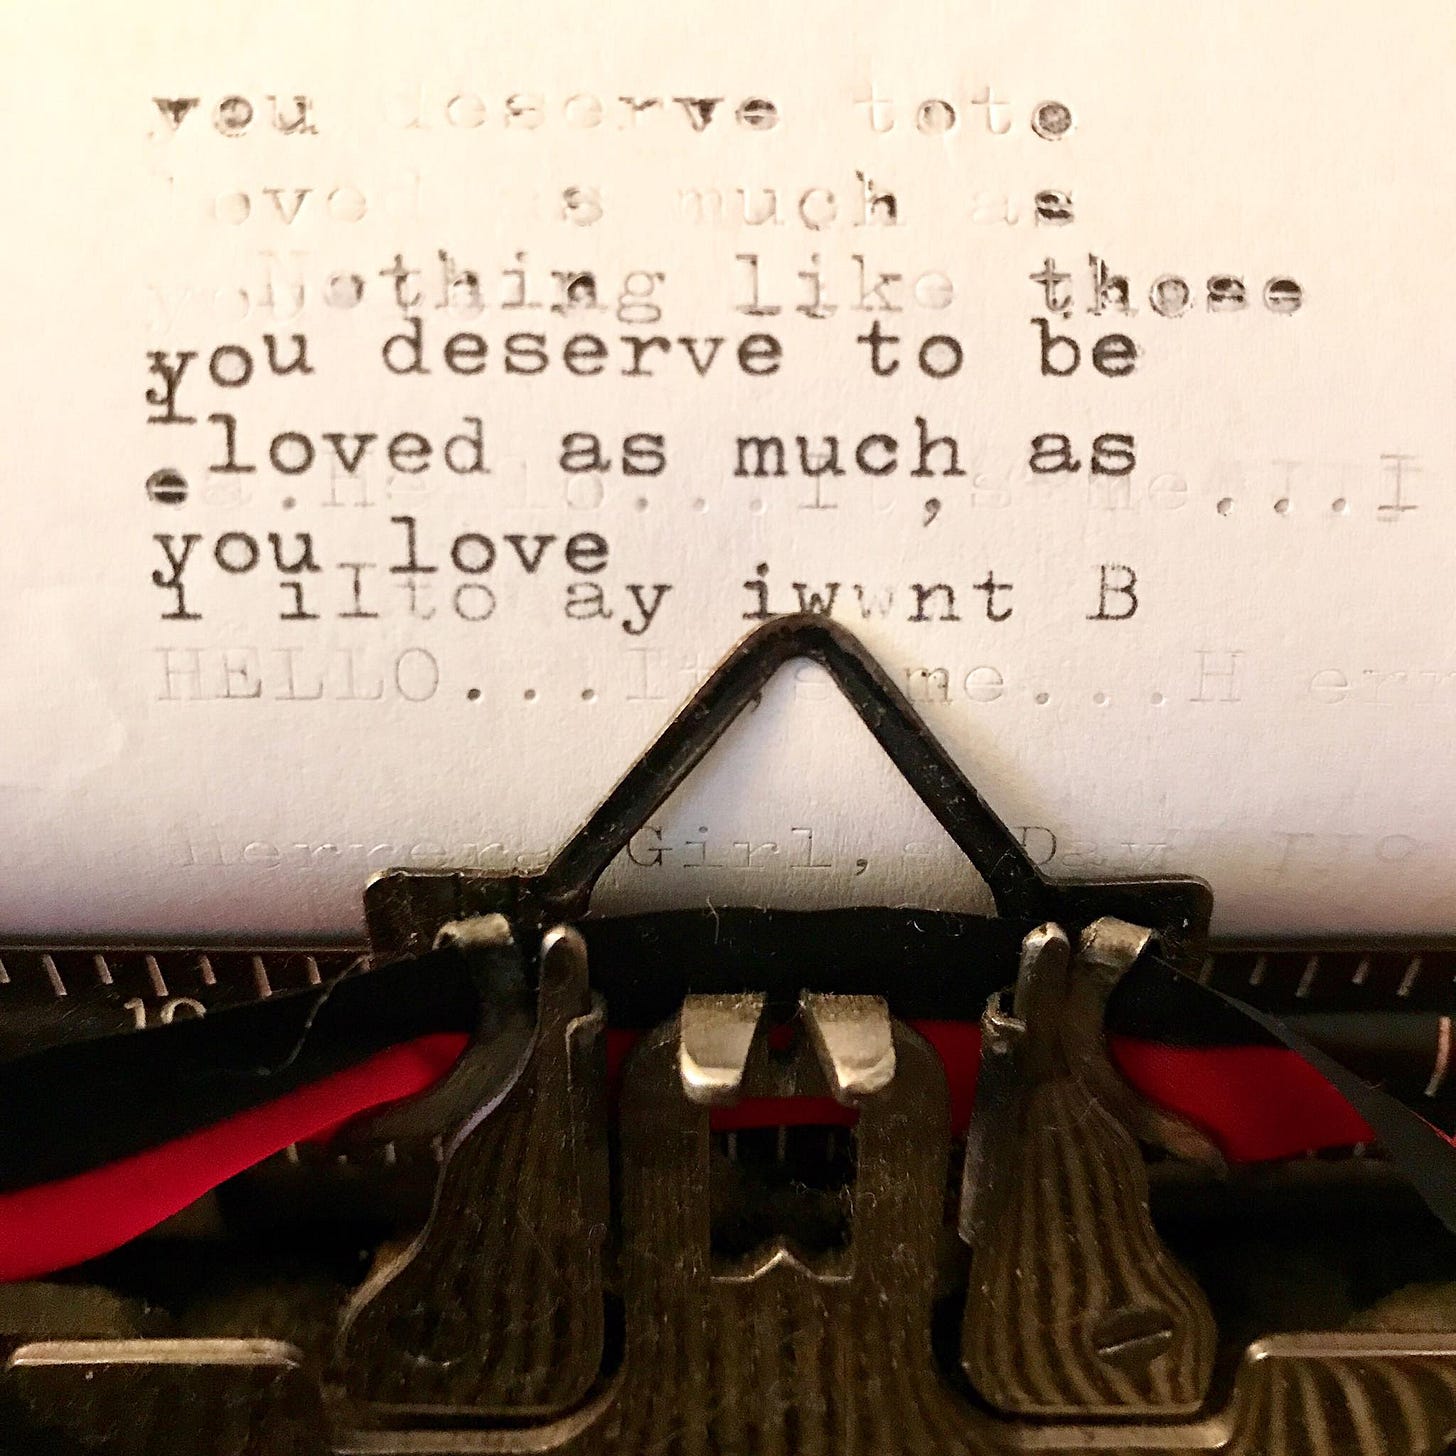 you deserve toto
loved as much as
you Nothing like those
you deserve to be
l
loved as much as
e a.Hello...It,s me...I
you love
i iIto ay iwwnt B
HELLO...It,s me...H err
Herrera Girl, a Day
10